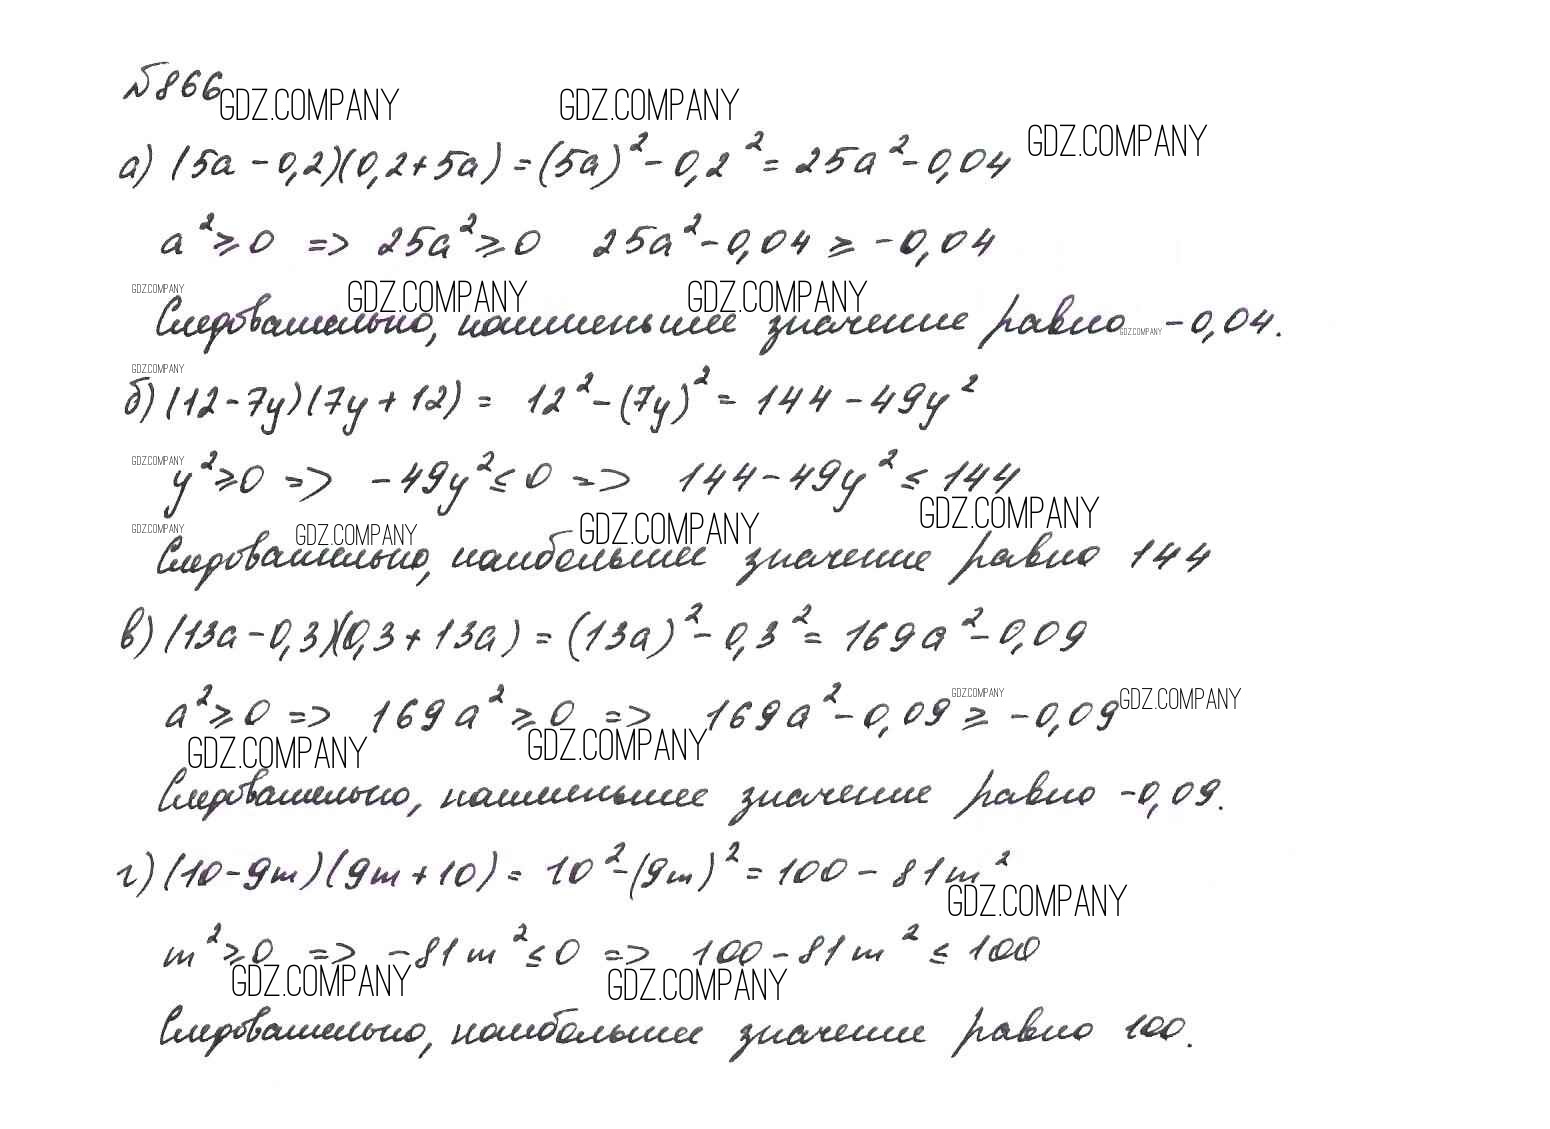 №866
GDZ.COMPANY GDZ.COMPANY GDZ.COMPANY
а) (5a - 0,2)(0,2+5a) = (5a)² - 0,2² = 25a² - 0,04
a² ⩾ 0 => 25a² ⩾ 0 25a² - 0,04 ⩾ -0,04
GDZ.COMPANY GDZ.COMPANY GDZ.COMPANY
Следовательно, наименьшее значение равно GDZ.COMPANY -0,04.
GDZ.COMPANY
б) (12-7y)(7y+12) = 12² - (7y)² = 144 - 49y²
GDZ.COMPANY
y² ⩾ 0 => -49y² ≤ 0 => 144 - 49y² ≤ 144
GDZ.COMPANY GDZ.COMPANY GDZ.COMPANY GDZ.COMPANY
Следовательно, наибольшее значение равно 144
в) (13a - 0,3)(0,3 + 13a) = (13a)² - 0,3² = 169a² - 0,09
GDZ.COMPANY GDZ.COMPANY
a² ⩾ 0 => 169a² ⩾ 0 => 169a² - 0,09 ⩾ -0,09
GDZ.COMPANY GDZ.COMPANY
Следовательно, наименьшее значение равно -0,09.
г) (10-9m)(9m+10) = 10² - (9m)² = 100 - 81m²
GDZ.COMPANY
m² ⩾ 0 => -81m² ≤ 0 => 100 - 81m² ≤ 100
GDZ.COMPANY GDZ.COMPANY
Следовательно, наибольшее значение равно 100.